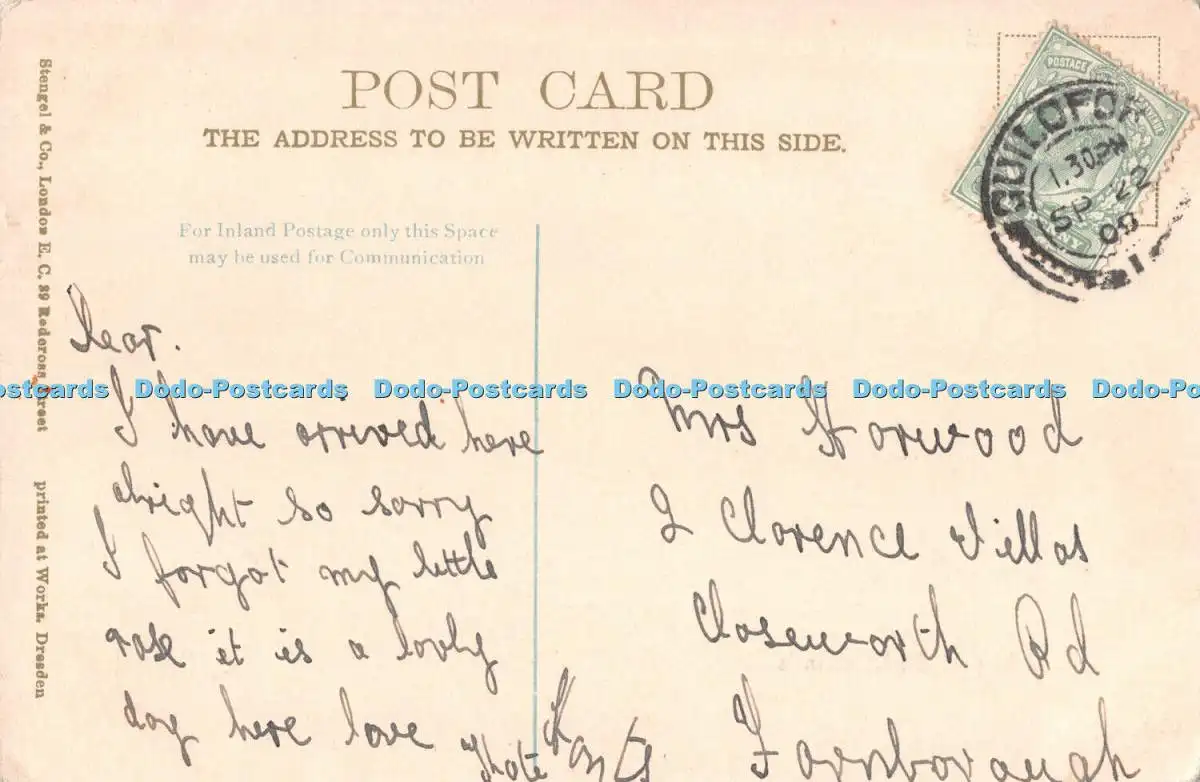 POST CARD
THE ADDRESS TO BE WRITTEN ON THIS SIDE.
Stengel & Co., London E. C. 39 Redcross Street
printed at Works, Dresden
For Inland Postage only this Space
may be used for Communication
POSTAGE
GUILDFOR
1.30PM
SP 22
08
Dear.
I have arrived here
alright so sorry
I forgot my little
rose it is a lovly
day here love
Kate
Mrs Horwood
2 Clarence Villas
Closeworth Rd
Farnborough
Hants
ostcards Dodo-Postcards Dodo-Postcards Dodo-Postcards Dodo-Postcards Dodo-Po